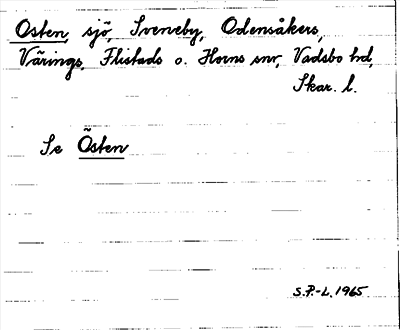 Osten, sjö, Sveneby, Odensåkers,
Värings, Flistads o. Horns snr, Vadsbo hd,
Skar. l.
Se Östen
S.P.-L. 1965